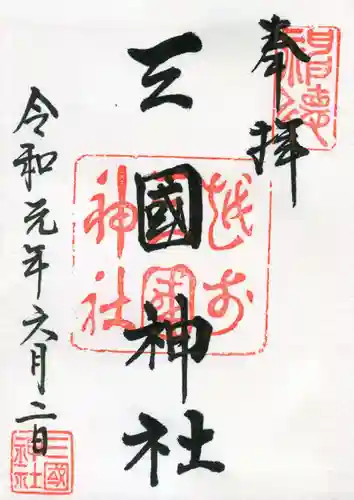 奉拝
三國神社
令和元年六月二日
越前
神社
三國
神社